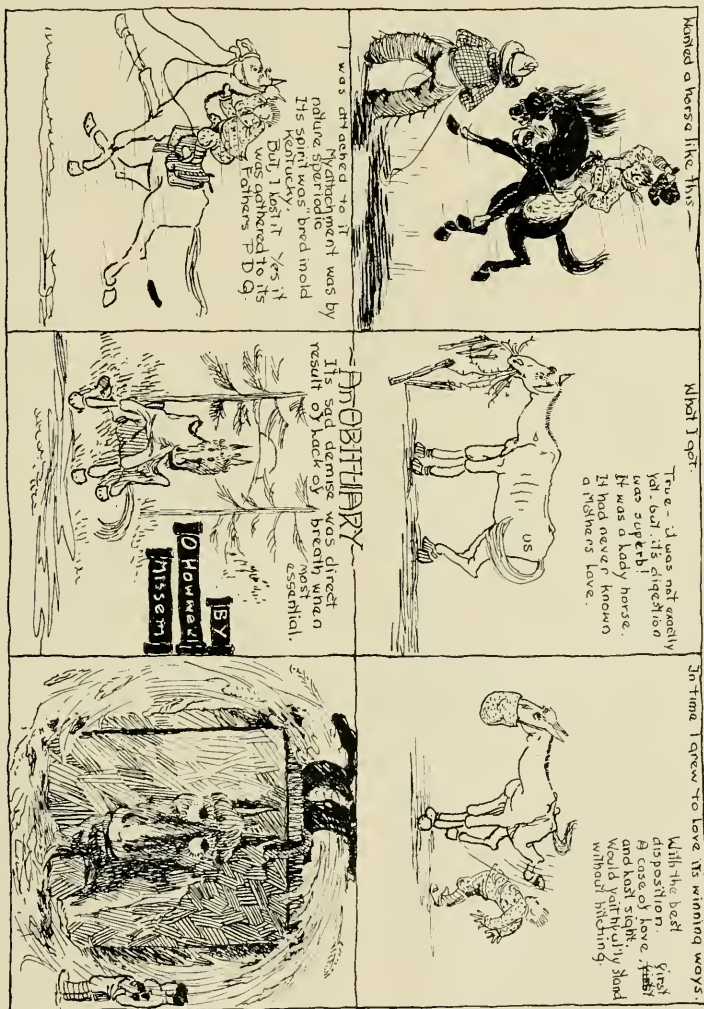 Wanted a horse like this—
What I got.
True - it was not exactly
fat- but, it's digestion
was superb!
It was a lady horse.
It had never known
a Mothers love.
US
In time I grew to love its winning ways.
With the best
disposition.
A case of love, first
and lost sight.
Would faithfully stand
without hitching.
I was attached to it
My attachment was by
nature speriodic
Its spirit was "bred in old
Kentucky.
But, I lost it Yes it
was gathered to its
Fathers P D Q.
-An OBITUARY-
It's sad demise was direct
result of lack of breath when
most
essential.
BY
O
Missem